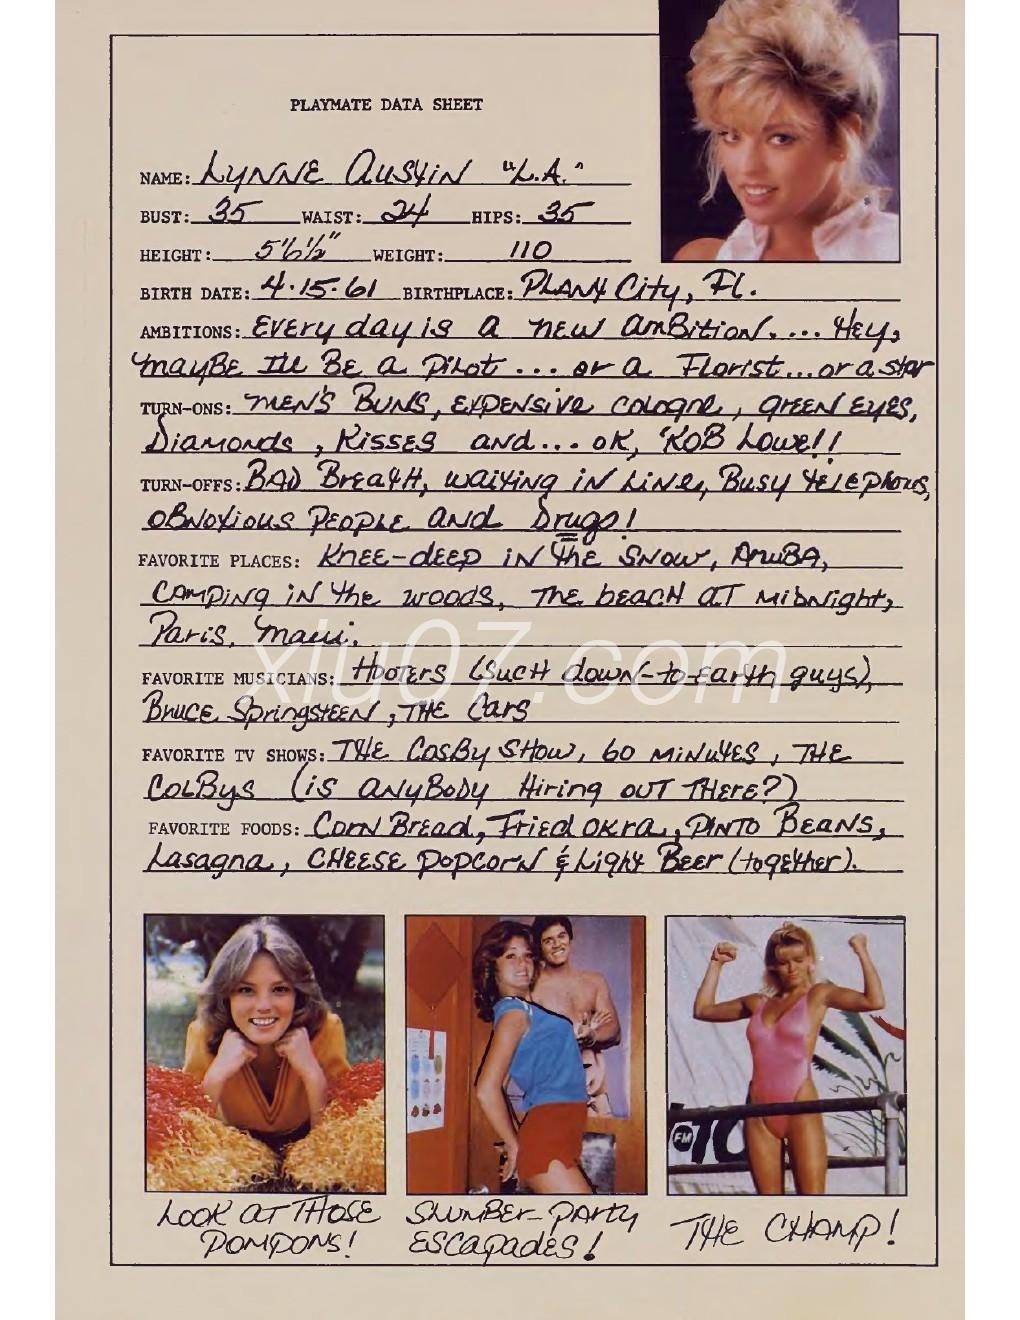 PLAYMATE DATA SHEET
NAME: LYNNE AUSTIN "L.A."
BUST: 35 WAIST: 24 HIPS: 35
HEIGHT: 5'6½" WEIGHT: 110
BIRTH DATE: 4·15·61 BIRTHPLACE: PLANT City, Fl.
AMBITIONS: EVEry day is a new amBition.... Hey,
maybe I'll BE a Pilot ... or a Florist...or a star
TURN-ONS: MEN'S BUNS, EXPENSIVE cologne, green EyES,
Diamonds, KissES and... OK, ROB Lowe!!
TURN-OFFS: BAD BreatH, waiting in Line, Busy telephones,
OBNOXious PEOPLE and Drugs!
FAVORITE PLACES: KNEE-dEEP in the SNOW, ARUBA,
CAMPing in the woods, THE bEACH aT Midnight,
Paris, maui.
FAVORITE MUSICIANS: HOOTERS (SUCH down-to-Earth guys),
Bruce SpringstEEN, THE Cars
FAVORITE TV SHOWS: THE COSBy SHow, 60 MiNUTES, THE
COLBys (is anyBody Hiring ouT THere?)
FAVORITE FOODS: Corn Bread, Fried okra, PINTO BEANS,
Lasagna, CHEESE popcorn & Light Beer (togEther).
xiu07.com
LOOK aT THOSE
POMPONS!
SLUMBER-PARTY
ESCapadES!
THE CHAMP!
FM
10